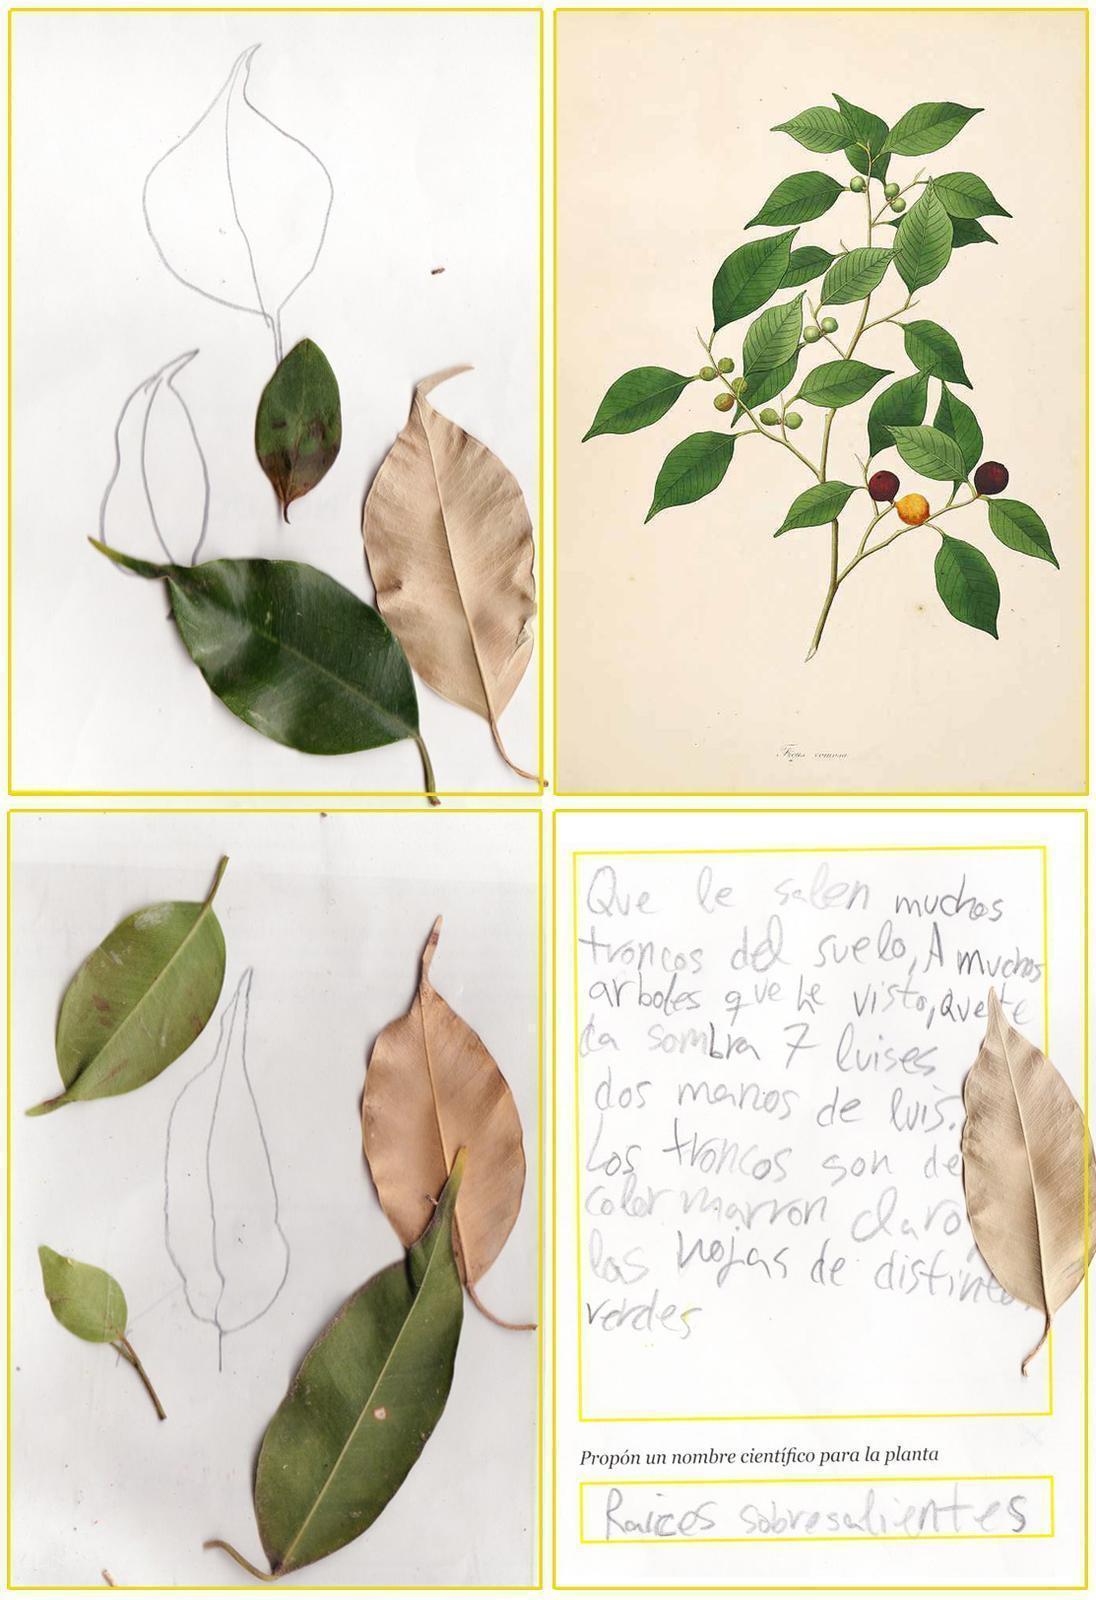 Ficus comosa
Que le salen muchos
troncos del suelo, A muchos
arboles que he visto, que te
da sombra 7 luises
dos manos de luis.
Los troncos son de
color marron claro
las hojas de distintos
verdes
Propón un nombre científico para la planta
Raices sobresalientes